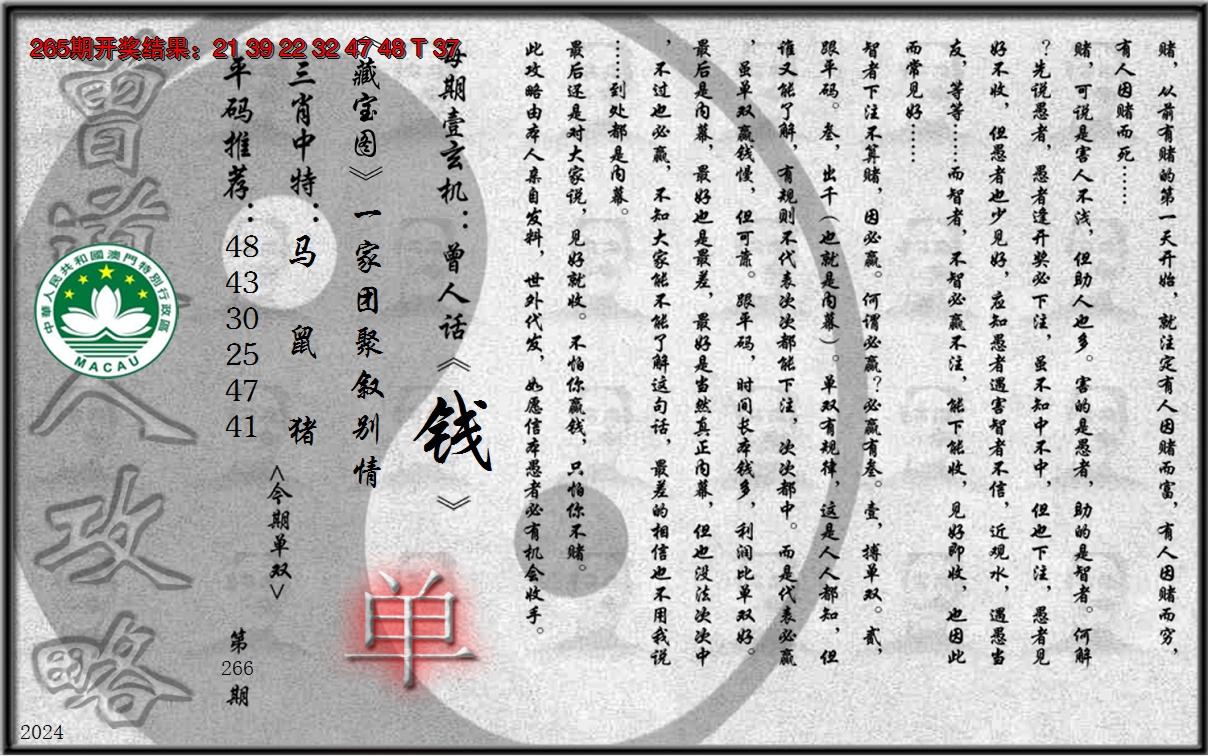 265期开奖结果：21 39 22 32 47 48 T 37
赌，从前有赌的第一天开始，就注定有人因赌而富，有人因赌而穷，
有人因赌而死……
赌，可说是害人不浅，但助人也多。害的是愚者，助的是智者。何解
？先说愚者，愚者逢开奖必下注，虽不知中不中，但也下注，愚者见
好不收，但愚者也少见好，应知愚者遇害智者不信，近观水，遇愚当
友，等等……而智者，不智必赢不注，能下能收，见好即收，也因此
而常见好……
智者下注不算赌，因必赢。何谓必赢？必赢有叁。壹，搏单双。贰，
跟平码。叁，出千（也就是内幕）。单双有规律，这是人人都知，但
谁又能了解，有规则不代表次次都能下注，次次都中。而是代表必赢
，虽单双赢钱慢，但可靠。跟平码，时间长本钱多，利润比单双好。
最后是内幕，最好也是最差，最好是当然真正内幕，但也没法次次中
，不过也必赢，不知大家能不能了解这句话，最差的相信也不用我说
……到处都是内幕。
最后还是对大家说，见好就收。不怕你赢钱，只怕你不赌。
此攻略由本人亲自发料，世外代发，如愿信本愚者必有机会收手。
每期壹玄机：曾人话《钱》
《藏宝图》一家团聚叙别情
三肖中特：马 鼠 猪
<今期单双>
单
平码推荐：48 43 30 25 47 41
第266期
曾道人攻略
中華人民共和國澳門特別行政區
MACAU
2024